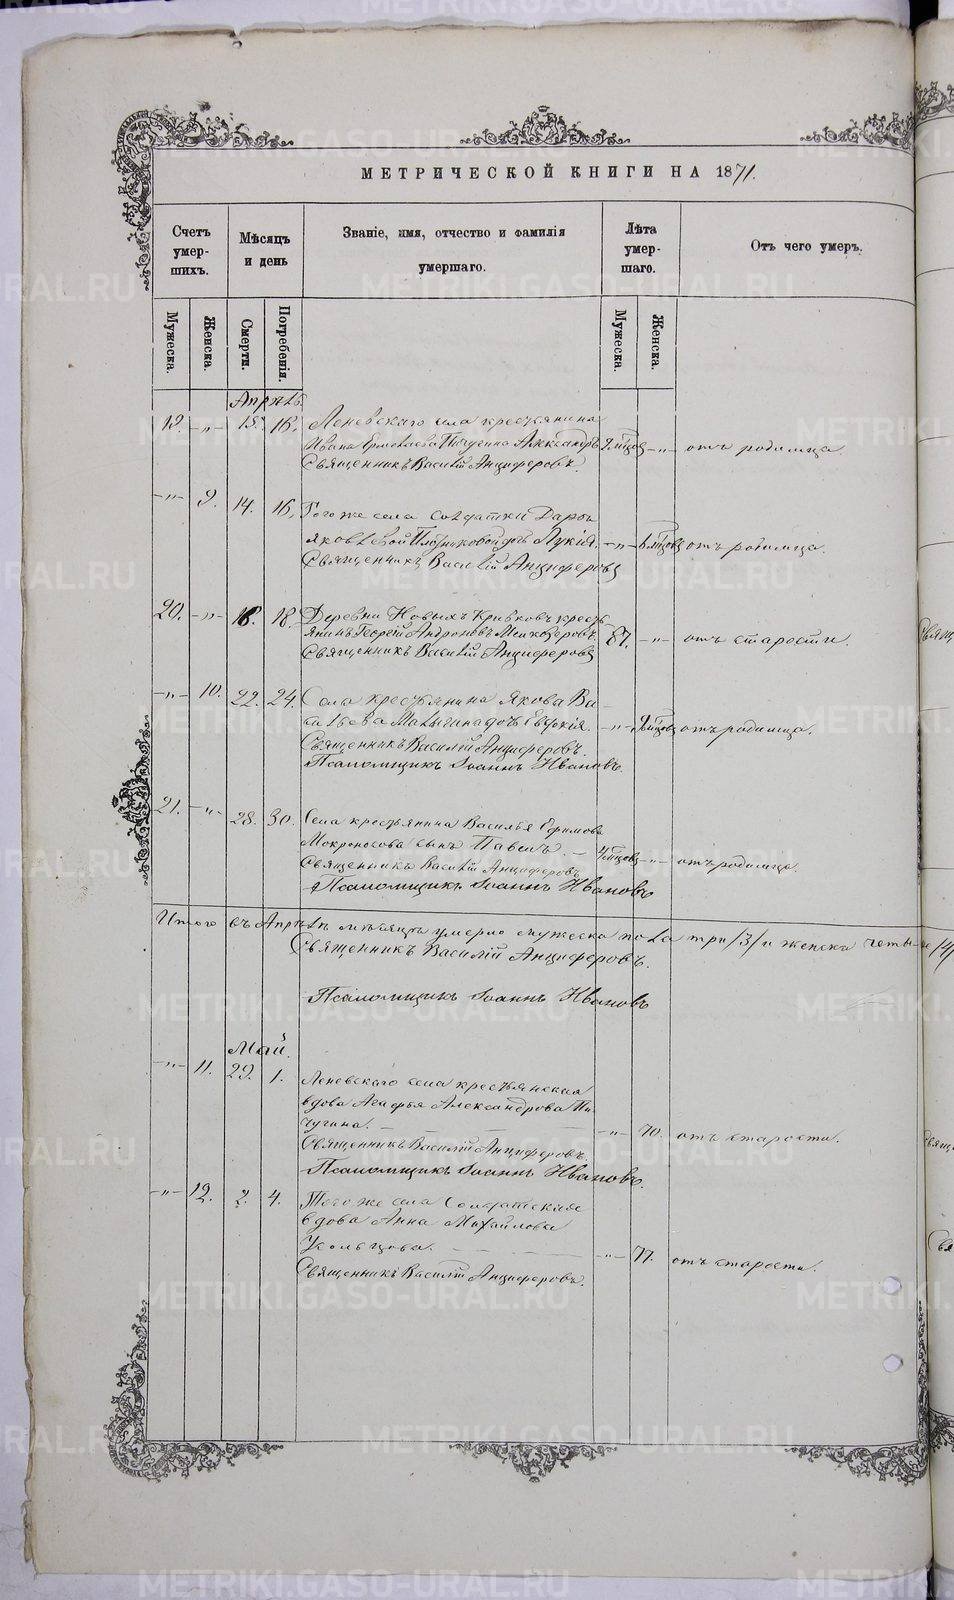 МЕТРИЧЕСКОЙ КНИГИ НА 1871.
Счетъ умер- шихъ.
Мѣсяцъ и день
Званіе, имя, отчество и фамилія умершаго.
Лѣта умер- шаго.
Отъ чего умеръ.
Мужеска.
Женска.
Смерти.
Погребенія.
Мужеска.
Женска.
Апрѣль.
19. -„- 15. 16. Леневскаго села крестьянина
Ивана Ермолаева Пичугина Александръ -„- отъ родимца.
Священникъ Василій Анциферовъ.
-„- 9. 14. 16. Того же села солдатки Дарьи
Яковлевой дочь Лукія. -„- отъ родимца.
Священникъ Василій Анциферовъ
20. -„- 18. Деревни Новыхъ Кривковъ кресть-
янинъ Георгій Андроновъ 87. -„- отъ старости.
Священникъ Василій Анциферовъ
-„- 10. 22. 24. Села крестьянина Якова Ва-
сильева дочь Евдокія. -„- отъ родимца.
Священникъ Василій Анциферовъ.
Псаломщикъ Іоаннъ Ивановъ.
21. -„- 28. 30. Села крестьянина Василья Ефимова
Мокроносова сынъ Павелъ. -„- отъ родимца.
Священникъ Василій Анциферовъ
Псаломщикъ Іоаннъ Ивановъ
Итого въ Апрѣлѣ мѣсяцѣ умерло мужеска пола три /3/ и женска четыре /4/
Священникъ Василій Анциферовъ.
Псаломщикъ Іоаннъ Ивановъ
Май.
-„- 11. 29. 1. Леневскаго села крестьянская
вдова Агафья Александрова Пи-
чугина. -„- 70. отъ старости.
Священникъ Василій Анциферовъ.
Псаломщикъ Іоаннъ Ивановъ.
-„- 12. 2. 4. Того же села Солдатская
вдова Анна Михайлова
Усольцова. -„- 77. отъ старости.
Священникъ Василій Анциферовъ.
METRIKI.GASO-URAL.RU